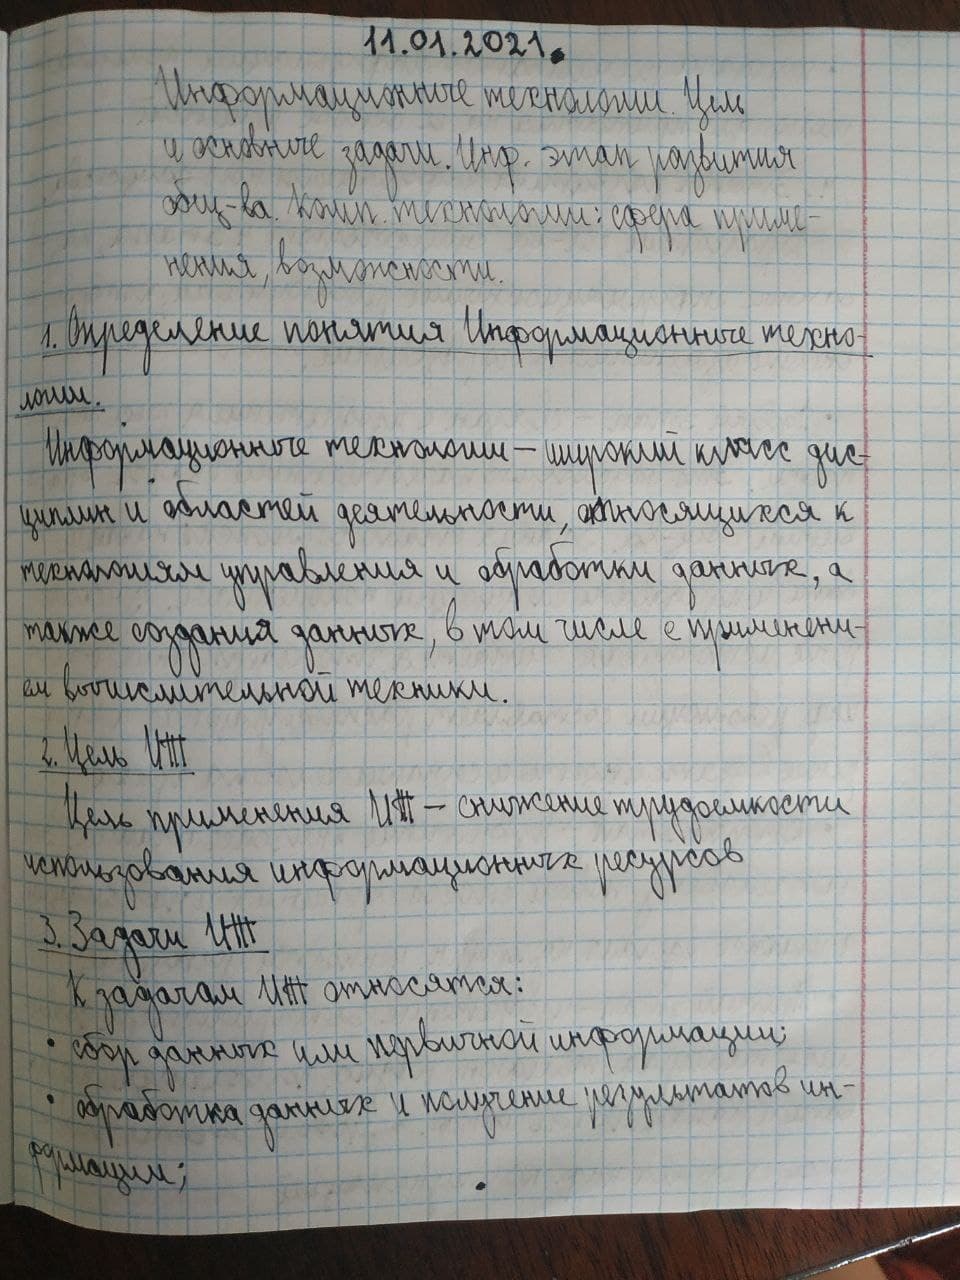 11.01.2021.
Информационные технологии. Цель
и основные задачи. Инф. этап развития
общ-ва. Комп. технологии: сфера приме-
нения, возможности.
1. Определение понятия Информационные техно-
логии.
Информационные технологии – широкий класс дис-
циплин и областей деятельности, относящихся к
технологиям управления и обработки данных, а
также создания данных, в том числе с применени-
ем вычислительной техники.
2. Цель ИТ
Цель применения ИТ – снижение трудоемкости
использования информационных ресурсов
3. Задачи ИТ
К задачам ИТ относятся:
• сбор данных или первичной информации;
• обработка данных и получение результатов ин-
формации;